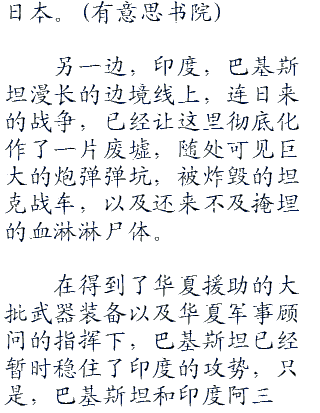 日本。(有意思书院)
另一边，印度，巴基斯
坦漫长的边境线上，连日来
的战争，已经让这里彻底化
作了一片废墟，随处可见巨
大的炮弹弹坑，被炸毁的坦
克战车，以及还来不及掩埋
的血淋淋尸体。
在得到了华夏援助的大
批武器装备以及华夏军事顾
问的指挥下，巴基斯坦已经
暂时稳住了印度的攻势，只
是，巴基斯坦和印度阿三